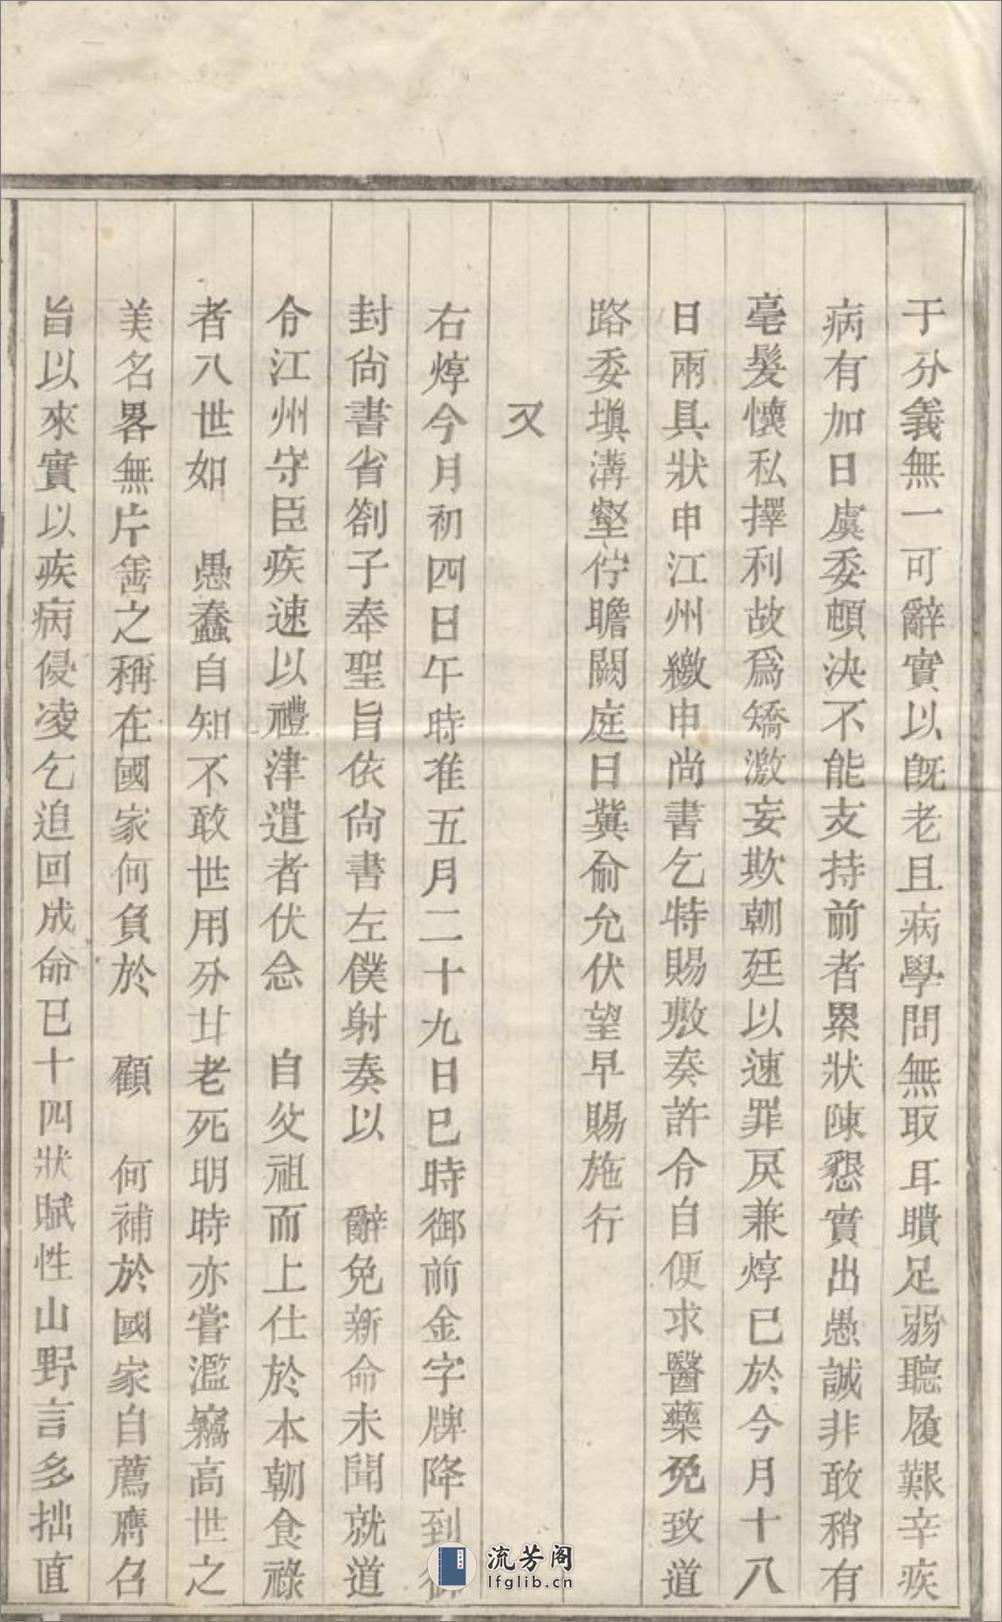 于分義無一可辭實以旣老且病學問無取耳聵足弱聽履艱辛疾
病有加日虞委頓決不能支持前者累狀陳懇實出愚誠非敢稍有
毫髮懷私擇利故爲矯激妄欺朝廷以速罪戾兼焞已於今月十八
日兩具狀申江州繳申尚書乞特賜敷奏許令自便求醫藥免致道
路委塡溝壑佇瞻闕庭日冀俞允伏望早賜施行
又
右焞今月初四日午時准五月二十九日巳時御前金字牌降到御
封尚書省劄子奉聖旨依尚書左僕射奏以 辭免新命未聞就道
令江州守臣疾速以禮津遣者伏念 自父祖而上仕於本朝食祿
者八世如 愚蠢自知不敢世用分甘老死明時亦嘗濫竊高世之
美名畧無片善之稱在國家何負於 顧 何補於國家自薦膺召
旨以來實以疾病侵凌乞追回成命已十四狀賦性山野言多拙直
流芳阁
lfglib.cn